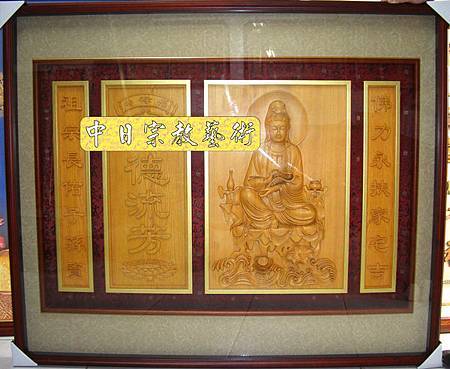 中日宗教藝術
佛力永扶家宅吉
德流芳
祖宗長佑子孫賢